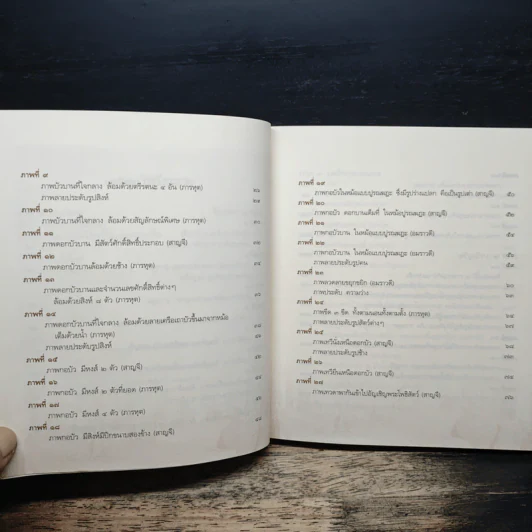 ภาพที่ ๙
ภาพบัวบานที่ใจกลาง ล้อมด้วยตรีรตนะ ๔ อัน (ภารหุต)
ภาพลายประดับรูปสิงห์
ภาพที่ ๑๐
ภาพบัวบานที่ใจกลาง ล้อมด้วยสัญลักษณ์พิเศษ (ภารหุต)
ภาพที่ ๑๑
ภาพดอกบัวบาน มีสัตว์ศักดิ์สิทธิ์ประกอบ (สาญจี)
ภาพที่ ๑๒
ภาพดอกบัวบานล้อมด้วยช้าง (ภารหุต)
ภาพที่ ๑๓
ภาพดอกบัวบานและจำนวนเลขศักดิ์สิทธิ์ต่างๆ
ล้อมด้วยสิงห์ ๘ ตัว (ภารหุต)
ภาพที่ ๑๔
ภาพดอกบัวบานที่ใจกลาง ล้อมด้วยสายเครือเถาบัวขึ้นมาจากหม้อ
เต็มด้วยน้ำ (ภารหุต)
ภาพลายประดับรูปสิงห์
ภาพที่ ๑๕
ภาพกอบัว มีหงส์ ๒ ตัว (สาญจี)
ภาพที่ ๑๖
ภาพกอบัว มีหงส์ ๒ ตัวที่ยอด (ภารหุต)
ภาพที่ ๑๗
ภาพกอบัว มีหงส์ ๔ ตัว (ภารหุต)
ภาพที่ ๑๘
ภาพกอบัว มีสิงห์มีปีกขนาบสองข้าง (สาญจี)
ภาพที่ ๑๙
ภาพกอบัวในหม้อแบบปูรณฆฏะ ซึ่งมีรูปร่างแปลก คือเป็นรูปเต่า (สาญจี) ๕๐
ภาพที่ ๒๐
ภาพกอบัว ดอกบานเต็มที่ ในหม้อปูรณฆฏะ (สาญจี)
ภาพที่ ๒๑
ภาพกอบัวบาน ในหม้อแบบปูรณฆฏะ (อมราวดี)
ภาพที่ ๒๒
ภาพกอบัวบาน ในหม้อแบบปูรณฆฏะ (อมราวดี)
ภาพลายประดับรูปคน
ภาพที่ ๒๓
ภาพดอกบัว (อมราวดี)
ภาพประดับ
ภาพที่ ๒๔
ภาพขีด ๓ ขีด ทั้งตามนอนทั้งตามตั้ง (ภารหุต)
ภาพลายประดับรูปสัตว์ต่างๆ
ภาพที่ ๒๕
ภาพเทวีนั่งเหนือดอกบัว (สาญจี)
ภาพลายประดับรูปช้าง
ภาพที่ ๒๖
ภาพเทวียืนเหนือดอกบัว (สาญจี)
ภาพที่ ๒๗
ภาพเทวดาพากันเข้าไปอัญเชิญพระโพธิสัตว์ (สาญจี)